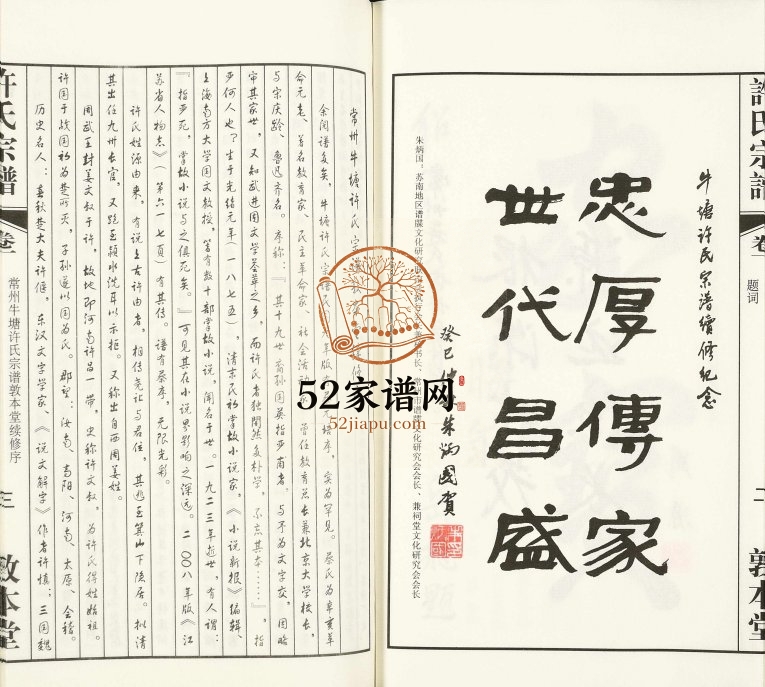 許氏宗譜
卷一
題词
二
敦本堂
牛塘許氏宗譜續修紀念
忠厚傳家
世代昌盛
癸巳
朱炳國賀
朱炳国:苏南地区谱牒文化研究
化研究会会长、兼祠堂文化研究会会长
常州牛塘許氏宗譜
余阅谱多矣,牛塘許氏宗譜
实为罕见。蔡氏为辛亥革
命元老、著名教育家、民主革命家、社会活
曾任教育总长兼北京大学校长,
与宋庆龄、鲁迅齐名。序称:『其十九世裔孙国英指严甫者,与予为文字交,因略
审其家世,又知武进固文学荟萃之乡,而许氏者独闇然多朴学,不忘其本……』,指
严何人也?生于光绪元年(一八七五),清末民初掌故小说家,《小说新报》编辑、
上海南方大学国文教授,著有数十部掌故小说,闻名于世。一九二三年逝世,有人谓:
『指严死,掌故小说与之俱死矣。』可见其在小说界影响之深远。二〇〇八年版《江
苏省人物志》(第六一七页)有其传。谱有蔡序,无限光彩。
许氏姓源由来,有说上古许由者,相传尧让与君位,其逃至箕山下隐居。拟请
其出任九州长官,又跑至颍水洗耳以示拒。又称出自西周姜姓。
周武王封姜文叔于许,故地即河南许昌一带,史称许文叔,为许氏得姓始祖。
许国于战国初为楚所灭,子孙遂以国为氏。郡望:汝南、高阳、河南、太原、会稽。
历史名人:春秋楚大夫许偃,东汉文字学家、《说文解字》作者许慎;三国魏
許氏宗譜
卷一
常州牛塘许氏宗谱敦本堂续修序
敦本堂
52家谱网
52jiapu.com